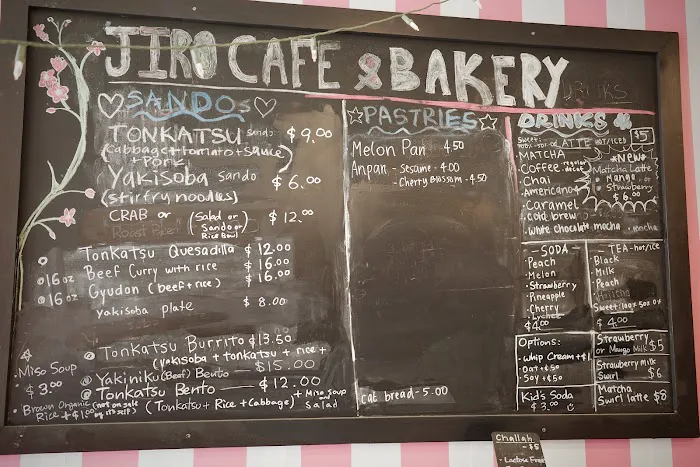 JIRO CAFE & BAKERY
DRINKS
SANDOS
TONKATSU Sando $9.00
(Cabbage + tomato + sauce
+ pork)
Yakisoba Sando $6.00
(Stirfry noodles)
CRAB or (Salad or $12.00
Roast Beef Sando or
Rice Bowl)
Tonkatsu Quesadilla $12.00
16oz Beef Curry with rice $16.00
16oz Gyudon (beef + rice) $16.00
yakisoba plate $8.00
Tonkatsu Burrito $13.50
(yakisoba + tonkatsu + rice +
Yakiniku (Beef) Bento $15.00
Tonkatsu Bento $12.00
(Tonkatsu + Rice + Cabbage) + Miso soup
and
Salad
Miso Soup
$3.00
Brown Organic (not on sale
Rice +$1.00 by itself)
PASTRIES
Melon Pan 4.50
Anpan - Sesame - 4.00
- Cherry Blossom - 4.50
cat bread - 5.00
DRINKS
LATTE HOT/ICED $5
Sweet:
MATCHA
Coffee - regular
- decaf
Chai
Americano
Caramel
Cold brew
White chocolate mocha - mocha
*NEW*
Matcha Latte
Mango
Strawberry
$6.00
- SODA -
Peach
Melon
Strawberry
Pineapple
Cherry
Lychee
$4.00
- TEA - hot/ice
Black
Milk
Peach
Hojicha
$4.00
Options:
Whip Cream +$1
Oat +$.50
Soy +$.50
Kid's Soda
$3.00
Strawberry
or Mango Milk $5
Strawberry milk
Swirl $6
Matcha
Swirl latte $8
Challah
- $5
- Lactose Free